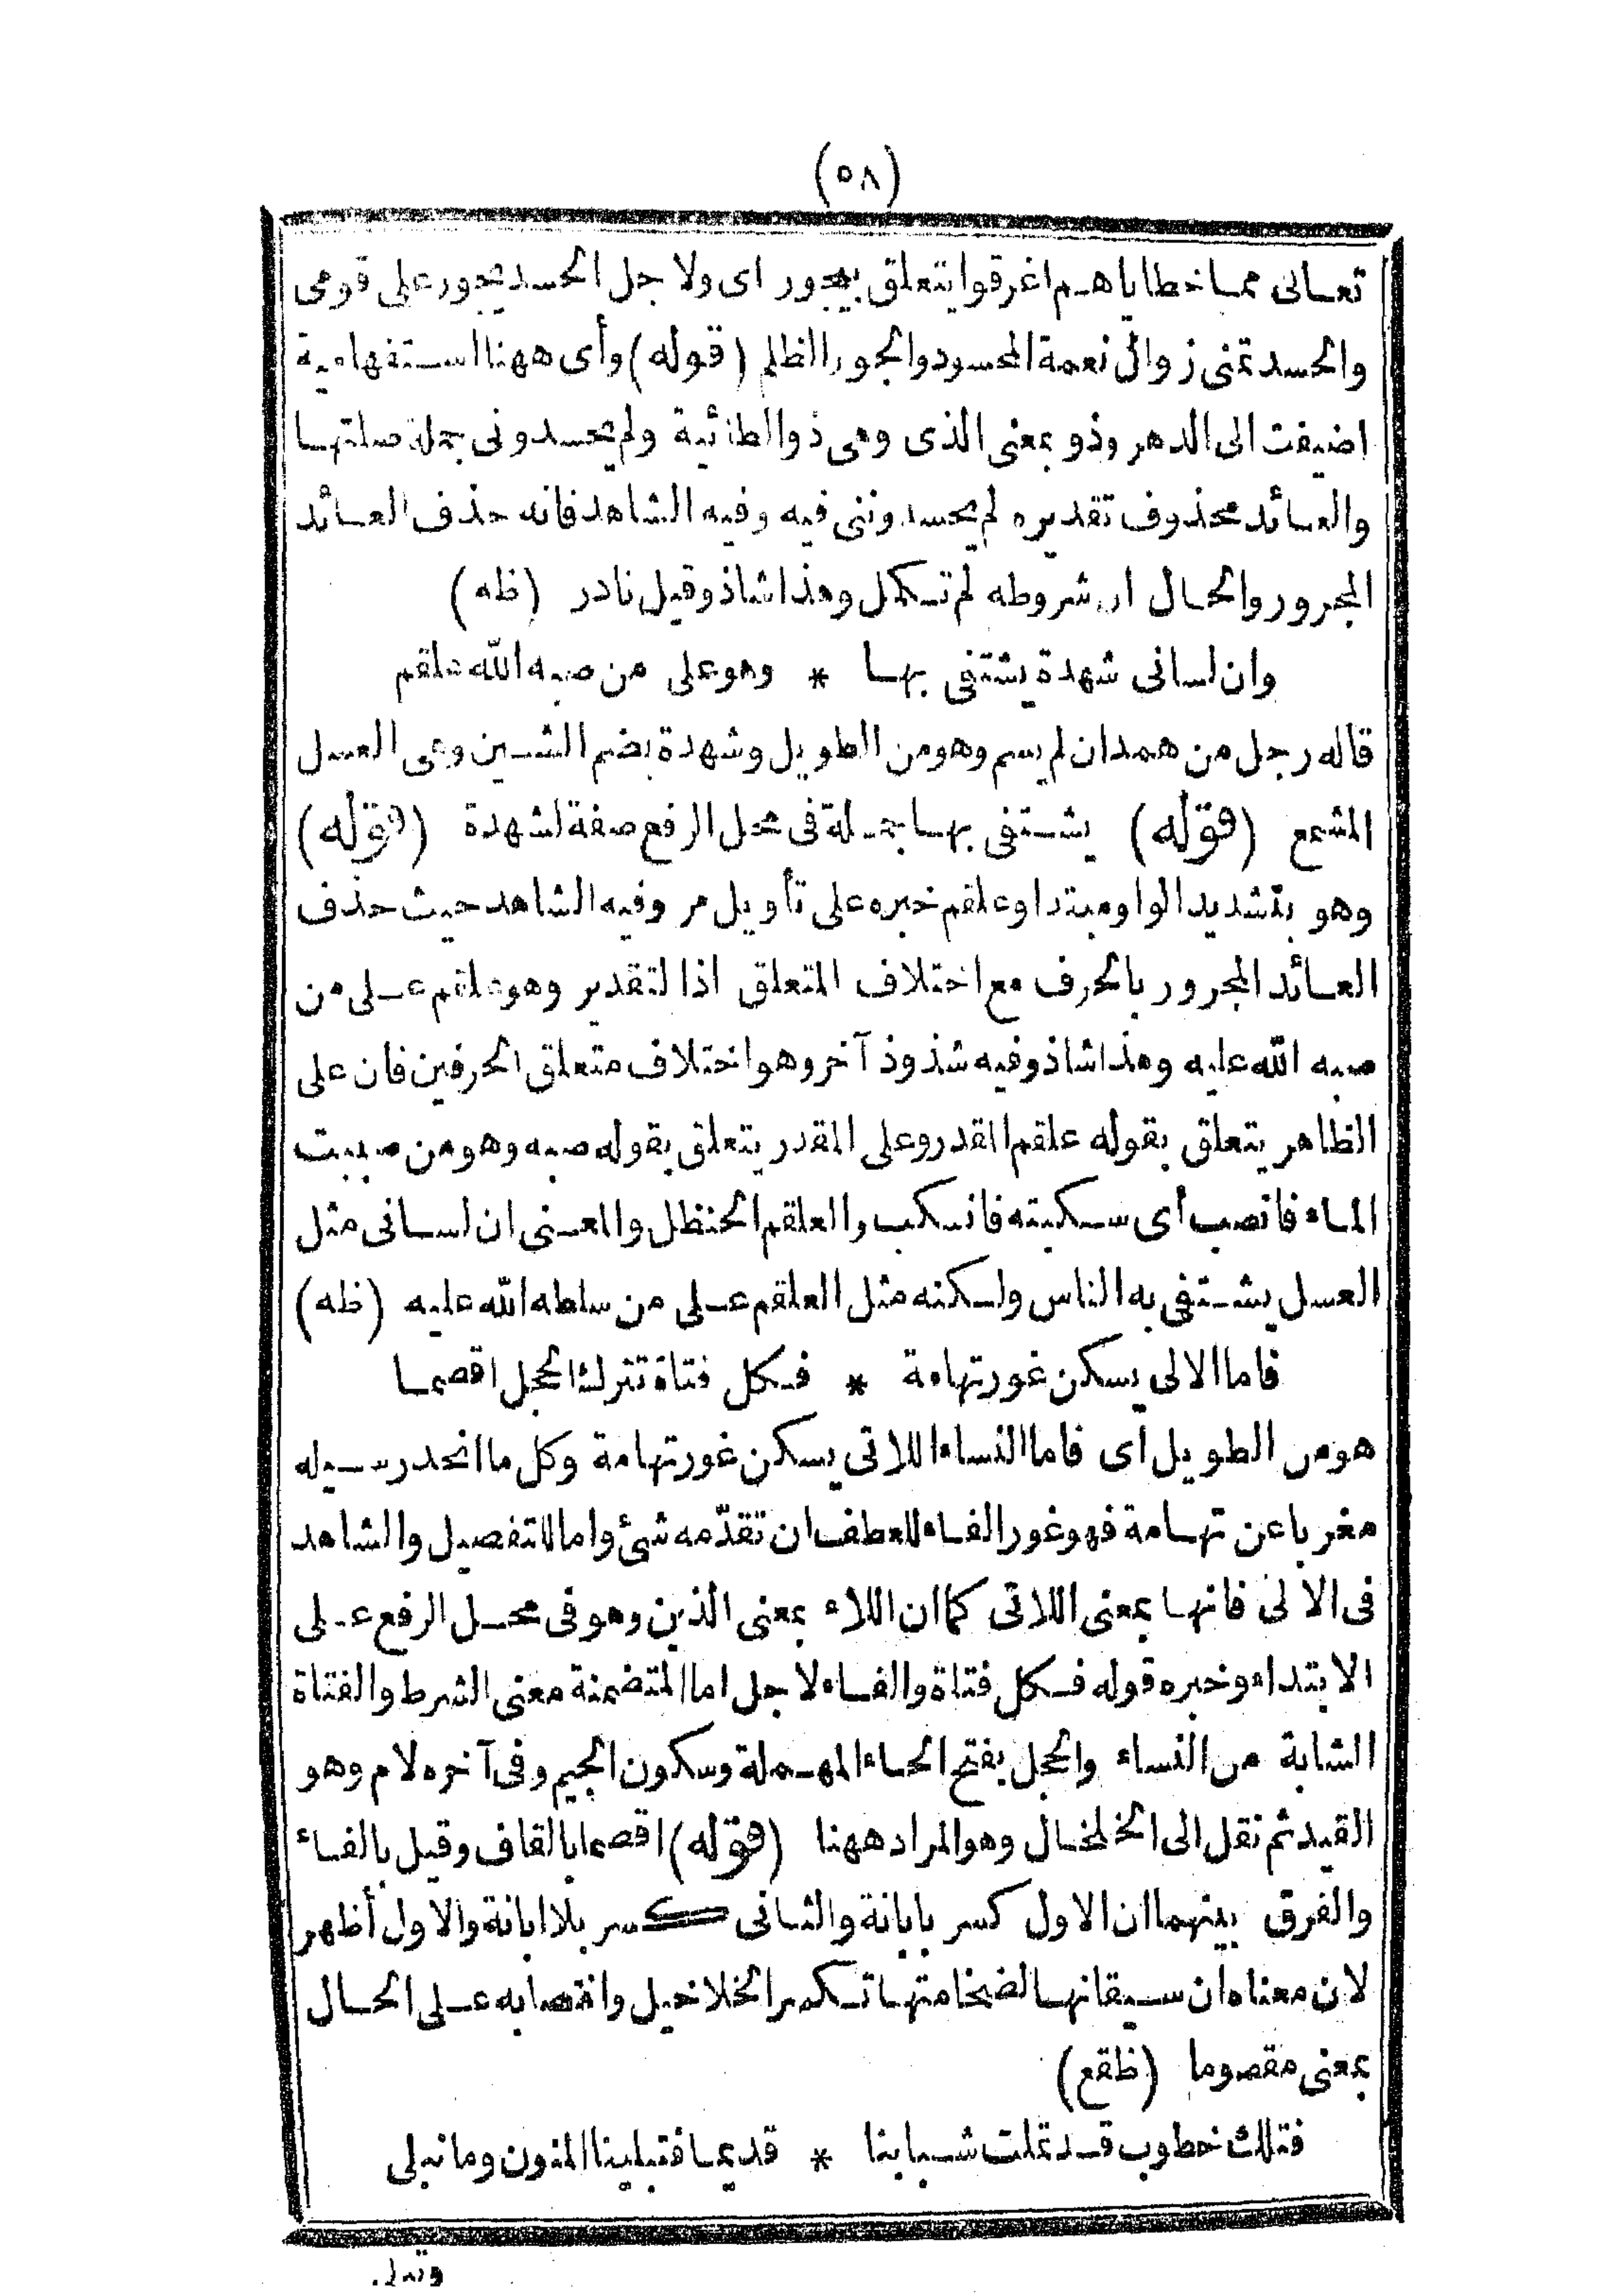 (٥٨)
تعالى مما خطاياهم اغرقوا يتعلق بيجور اى ولاجل الحسد يجور على قومى
والحسد تمنى زوال نعمة المحسود والجور الظلم (قوله) وأى ههنا استفهامية
اضيفت الى الدهر وذو بمعنى الذى وهى ذو الطائية ولم يحسدونى جملة صلتها
والعائد محذوف تقديره لم يحسدوننى فيه وفيه الشاهد فانه حذف العائد
المجرور والحال ان شروطه لم تكمل وهذا شاذ وقيل نادر (ظه)
وان لسانى شهدة يشتفى بها * وهو على من صبه الله علقم
قاله رجل من همدان لم يسم وهو من الطويل وشهدة بضم الشين وهى العسل
المشمع (قوله) يشتفى بها جملة فى محل الرفع صفة لشهدة (قوله)
وهو بتشديد الواو مبتدا وعلقم خبره على تأويل مر وفيه الشاهد حيث حذف
العائد المجرور بالحرف مع اختلاف المتعلق اذ التقدير وهو علقم على من
صبه الله عليه وهذا شاذ وفيه شذوذ آخر وهو اختلاف متعلق الحرفين فان على
الظاهر يتعلق بقوله علقم المقدر وعلى المقدر يتعلق بقوله صبه وهو من صببت
الماء فانصب أى سكبته فانسكب والعلقم الحنظل والمعنى ان لسانى مثل
العسل يشتفى به الناس ولكنه مثل العلقم على من سلطه الله عليه (ظه)
فاما الالى يسكن غور تهامة * فكل فتاة تترك الحجل اقصما
هو من الطويل أى فاما النساء اللاتى يسكن غور تهامة وكل ما انحدر سيله
مغربا عن تهامة فهو غور الفاء للعطف ان تقدّمه شئ واما للتفصيل والشاهد
فى الالى فانها بمعنى اللاتى كما ان اللاء بمعنى الذين وهو فى محل الرفع على
الابتداء وخبره قوله فكل فتاة والفاء لاجل اما المتضمنة معنى الشرط والفتاة
الشابة من النساء والحجل بفتح الحاء المهملة وسكون الجيم وفى آخره لام وهو
القيد ثم نقل الى الخلخال وهو المراد ههنا (قوله) اقصما بالقاف وقيل بالفاء
والفرق بينهما ان الاول كسر بابانة والثانى كسر بلا ابانة والاول أظهر
لان معناه ان سيقانها لضخامتها تكسر الخلاخيل وانتصابه على الحال
بمعنى مقصوما (ظقع)
فتلك خطوب قد تملت شبابنا * قديما فتبلينا المنون وما نبلى